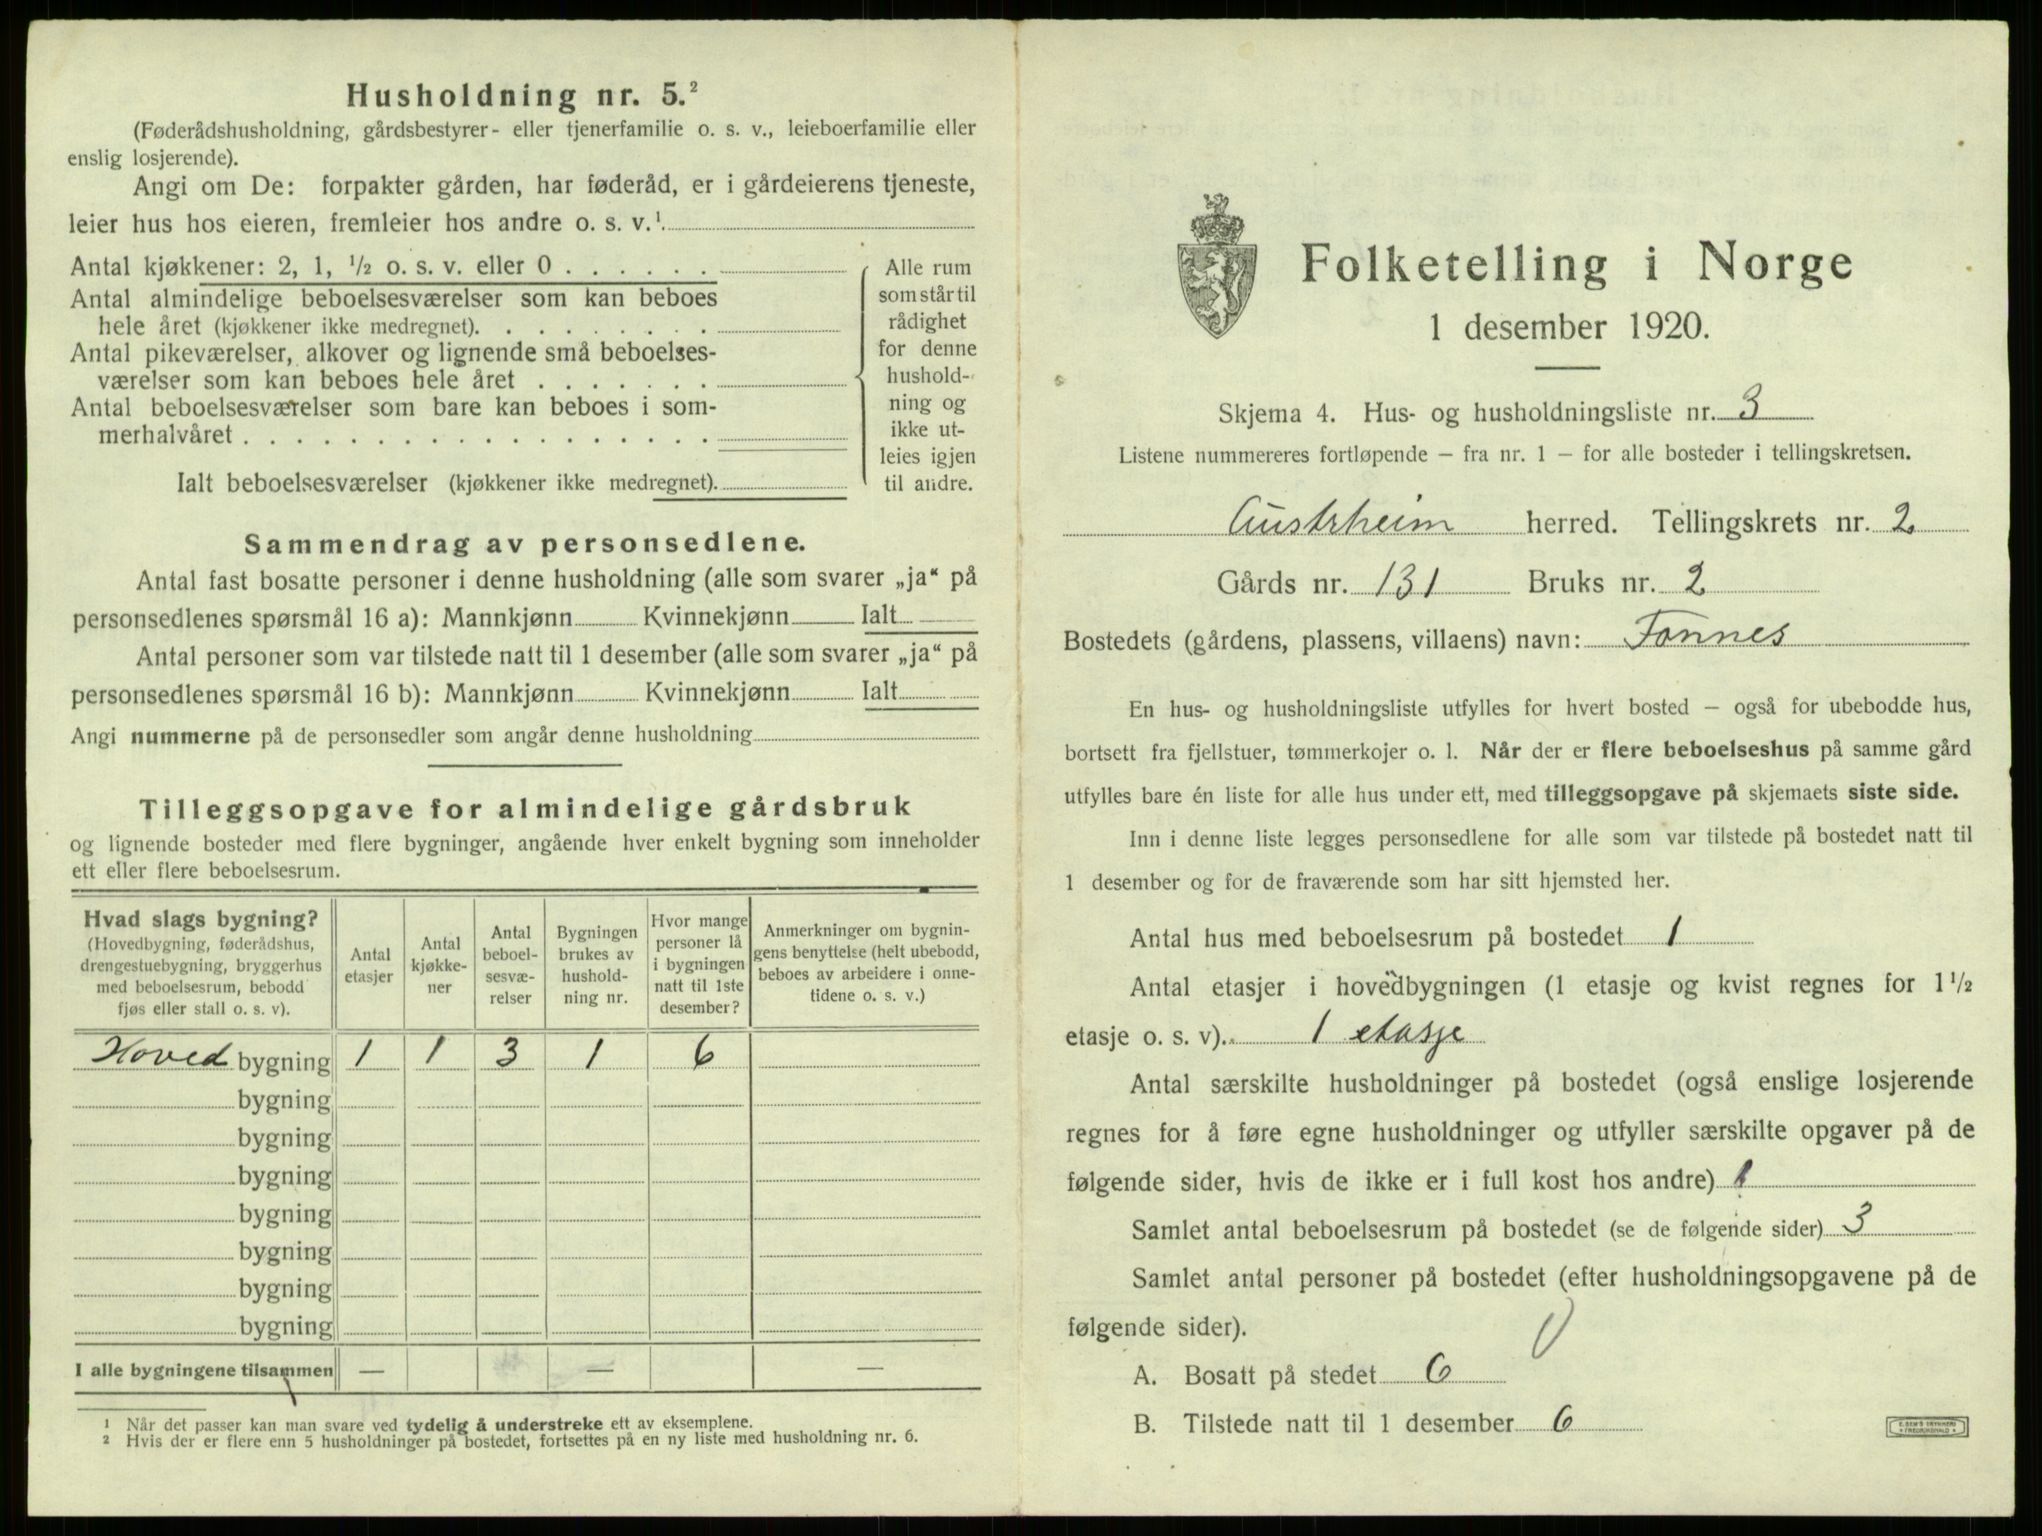 Husholdning nr. 5.²
(Føderådshusholdning, gårdsbestyrer- eller tjenerfamilie o. s. v., leieboerfamilie eller
enslig losjerende).
Angi om De: forpakter gården, har føderåd, er i gårdeierens tjeneste,
leier hus hos eieren, fremleier hos andre o. s. v.¹
Antal kjøkkener: 2, 1, ½ o. s. v. eller 0 . . . . . .
Antal almindelige beboelsesværelser som kan beboes
hele året (kjøkkener ikke medregnet). . . . . . . . .
Antal pikeværelser, alkover og lignende små beboelses-
værelser som kan beboes hele året . . . . . . .
Antal beboelsesværelser som bare kan beboes i som-
merhalvåret . . . . . . . . . . . . . . . . . .
Ialt beboelsesværelser (kjøkkener ikke medregnet).
Alle rum
som står til
rådighet
for denne
hushold-
ning og
ikke ut-
leies igjen
til andre.
Sammendrag av personsedlene.
Antal fast bosatte personer i denne husholdning (alle som svarer „ja“ på
personsedlenes spørsmål 16 a): Mannkjønn Kvinnekjønn Ialt
Antal personer som var tilstede natt til 1 desember (alle som svarer „ja“ på
personsedlenes spørsmål 16 b): Mannkjønn Kvinnekjønn Ialt
Angi nummerne på de personsedler som angår denne husholdning
Tilleggsopgave for almindelige gårdsbruk
og lignende bosteder med flere bygninger, angående hver enkelt bygning som inneholder
ett eller flere beboelsesrum.
Hvad slags bygning?
(Hovedbygning, føderådshus,
drengestuebygning, bryggerhus
med beboelsesrum, bebodd
fjøs eller stall o. s. v).
Antal
etasjer
Antal
kjøkke-
ner
Antal
beboel-
sesvæ-
relser
Bygningen
brukes av
hushold-
ning nr.
Hvor mange
personer lå
i bygningen
natt til 1ste
desember?
Anmerkninger om bygnin-
gens benyttelse (helt ubebodd,
beboes av arbeidere i onne-
tidene o. s. v.)
Hoved bygning 1 1 3 1 6
bygning
bygning
bygning
bygning
bygning
bygning
bygning
I alle bygningene tilsammen — — —
¹ Når det passer kan man svare ved tydelig å understreke ett av eksemplene.
² Hvis der er flere enn 5 husholdninger på bostedet, fortsettes på en ny liste med husholdning nr. 6.
Folketelling i Norge
1 desember 1920.
Skjema 4. Hus- og husholdningsliste nr. 3
Listene nummereres fortløpende — fra nr. 1 — for alle bosteder i tellingskretsen.
Austrheim herred. Tellingskrets nr. 2
Gårds nr. 131 Bruks nr. 2
Bostedets (gårdens, plassens, villaens) navn: Fonnes
En hus- og husholdningsliste utfylles for hvert bosted — også for ubebodde hus,
bortsett fra fjellstuer, tømmerkojer o. l. Når der er flere beboelseshus på samme gård
utfylles bare én liste for alle hus under ett, med tilleggsopgave på skjemaets siste side.
Inn i denne liste legges personsedlene for alle som var tilstede på bostedet natt til
1 desember og for de fraværende som har sitt hjemsted her.
Antal hus med beboelsesrum på bostedet 1
Antal etasjer i hovedbygningen (1 etasje og kvist regnes for 1½
etasje o. s. v). 1 etasje
Antal særskilte husholdninger på bostedet (også enslige losjerende
regnes for å føre egne husholdninger og utfyller særskilte opgaver på de
følgende sider, hvis de ikke er i full kost hos andre) 1
Samlet antal beboelsesrum på bostedet (se de følgende sider) 3
Samlet antal personer på bostedet (efter husholdningsopgavene på de
følgende sider).
A. Bosatt på stedet 6
B. Tilstede natt til 1 desember 6